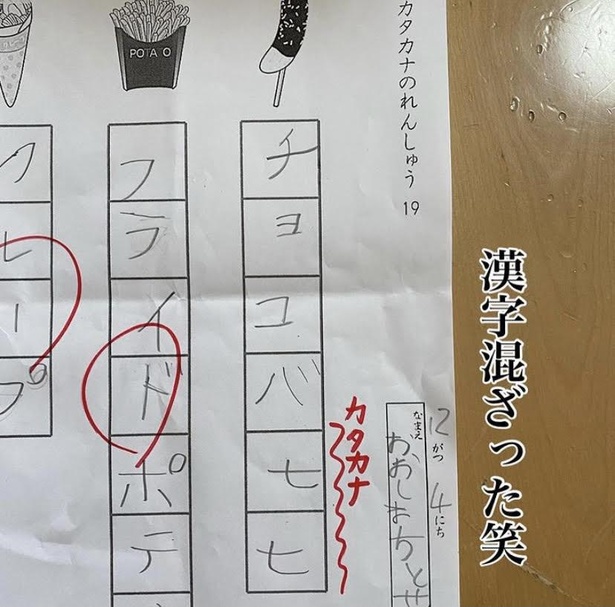 漢字混ざった笑
カタカナのれんしゅう 19
12がつ 4にち
なまえ おおしおちと
カタカナ
チョコバ七七
POTA O
フライドポテ
クレープ